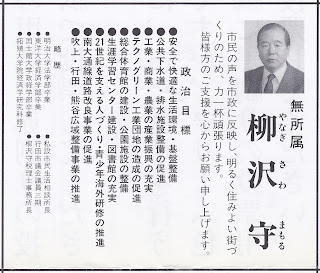 無所属
柳沢守
やなぎ さわ まもる
市民の声を市政に反映し、明るく住みよい街づ
くりのため、力一杯頑張ります。
皆様方のご支援を心からお願い申し上げます。
政治目標
●安全で快適な生活環境・基盤整備
●公共下水道・排水施設整備の促進
●工業・商業・農業の産業振興の充実
●テクノグリーン工業団地の造成の促進
●総合体育館の建設・公園施設の整備
●生涯学習センター建設・図書館の充実
●21世紀を支える人づくり・青少年海外研修の推進
●南大通線道路改良事業の促進
●吹上・行田・熊谷広域整備事業の推進
略歴
●明治大学法学部卒業
●東洋大学経済学部卒業
●国士舘大学政経学部卒業
●拓殖大学院経済学研究科修了
●私設市民生活相談所長
●行田市議会議員三期
●柳沢守税理士事務所長